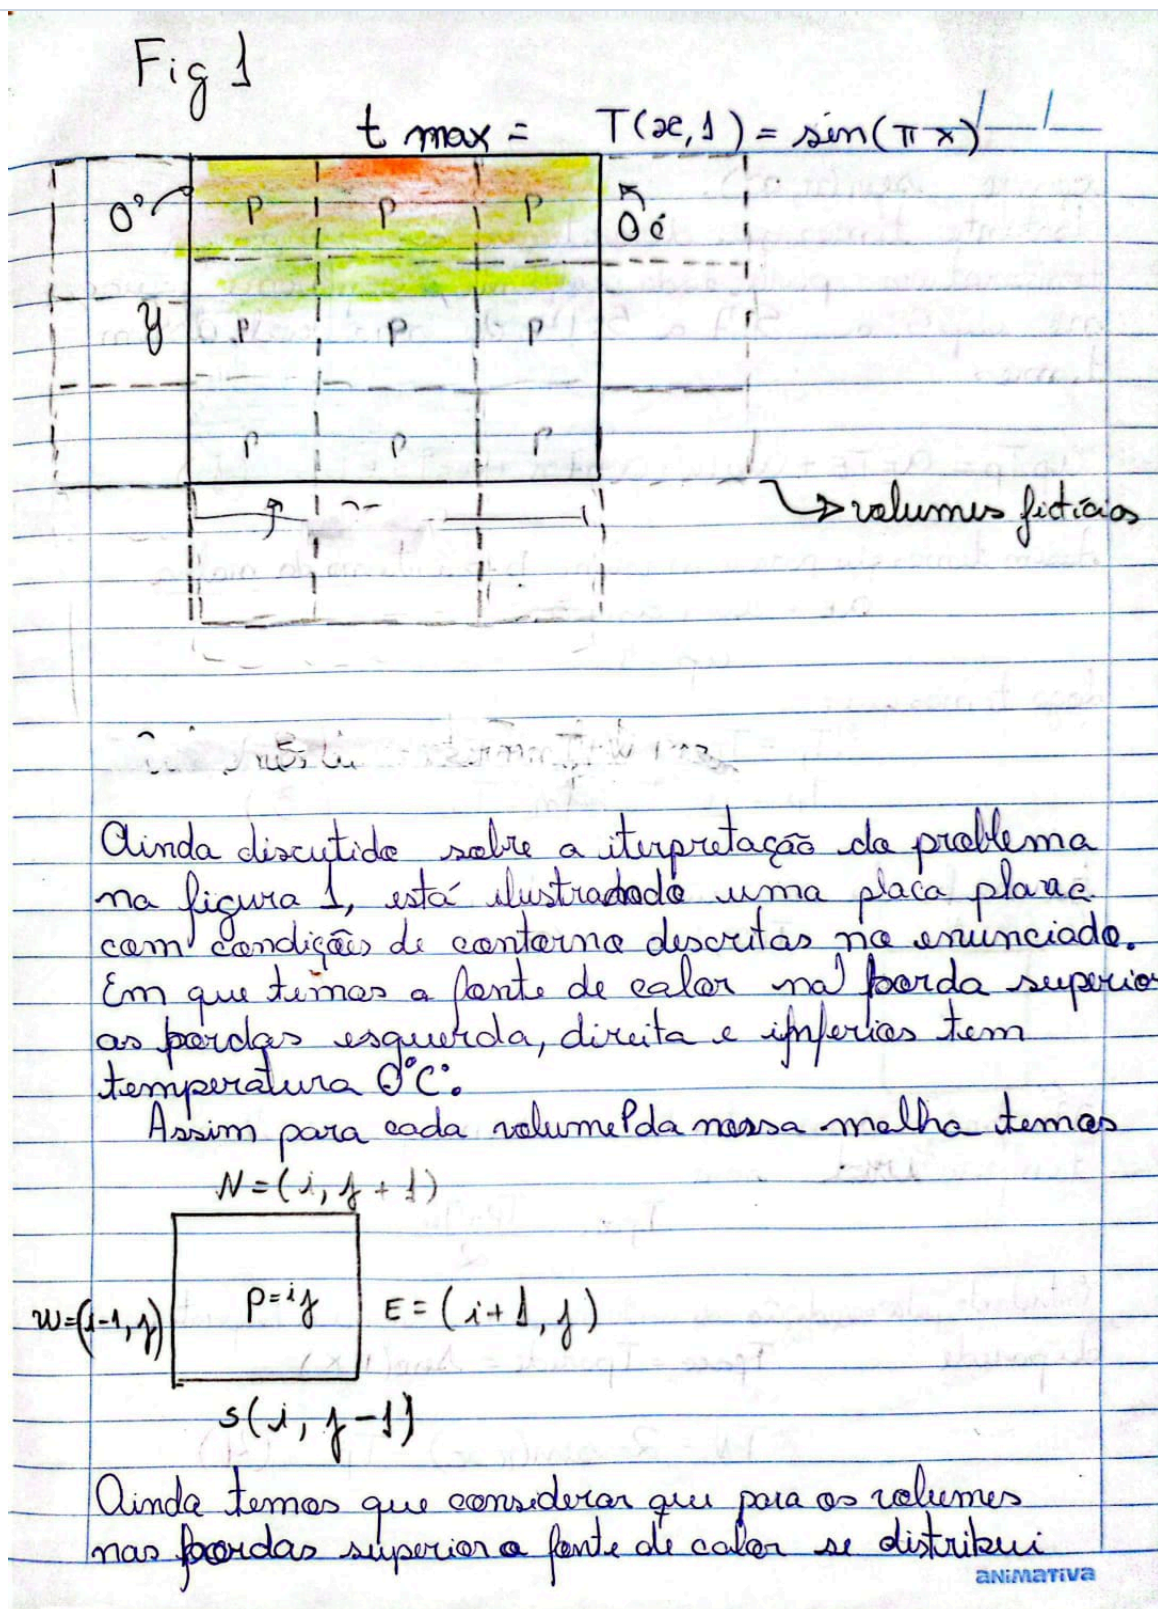 Fig 1
t max = T(x, 1) = sin(π x)
0° P P P 0°
y P P P
P P P
volumes fictícios
Ainda discutido sobre a iterpretação do problema
na figura 1, está ilustradado uma placa plana
com condições de contorno descritas no enunciado.
Em que temos a fonte de calor na borda superior
as bordas esquerda, direita e inferios tem
temperatura 0°C.
Assim para cada volume P da nossa malha temos
N=(i, j+1)
W=(i-1, j) P=ij E=(i+1, j)
S(i, j-1)
Ainda temos que considerar que para os volumes
nas bordas superior a fonte de calor se distribui
ANIMATIVA